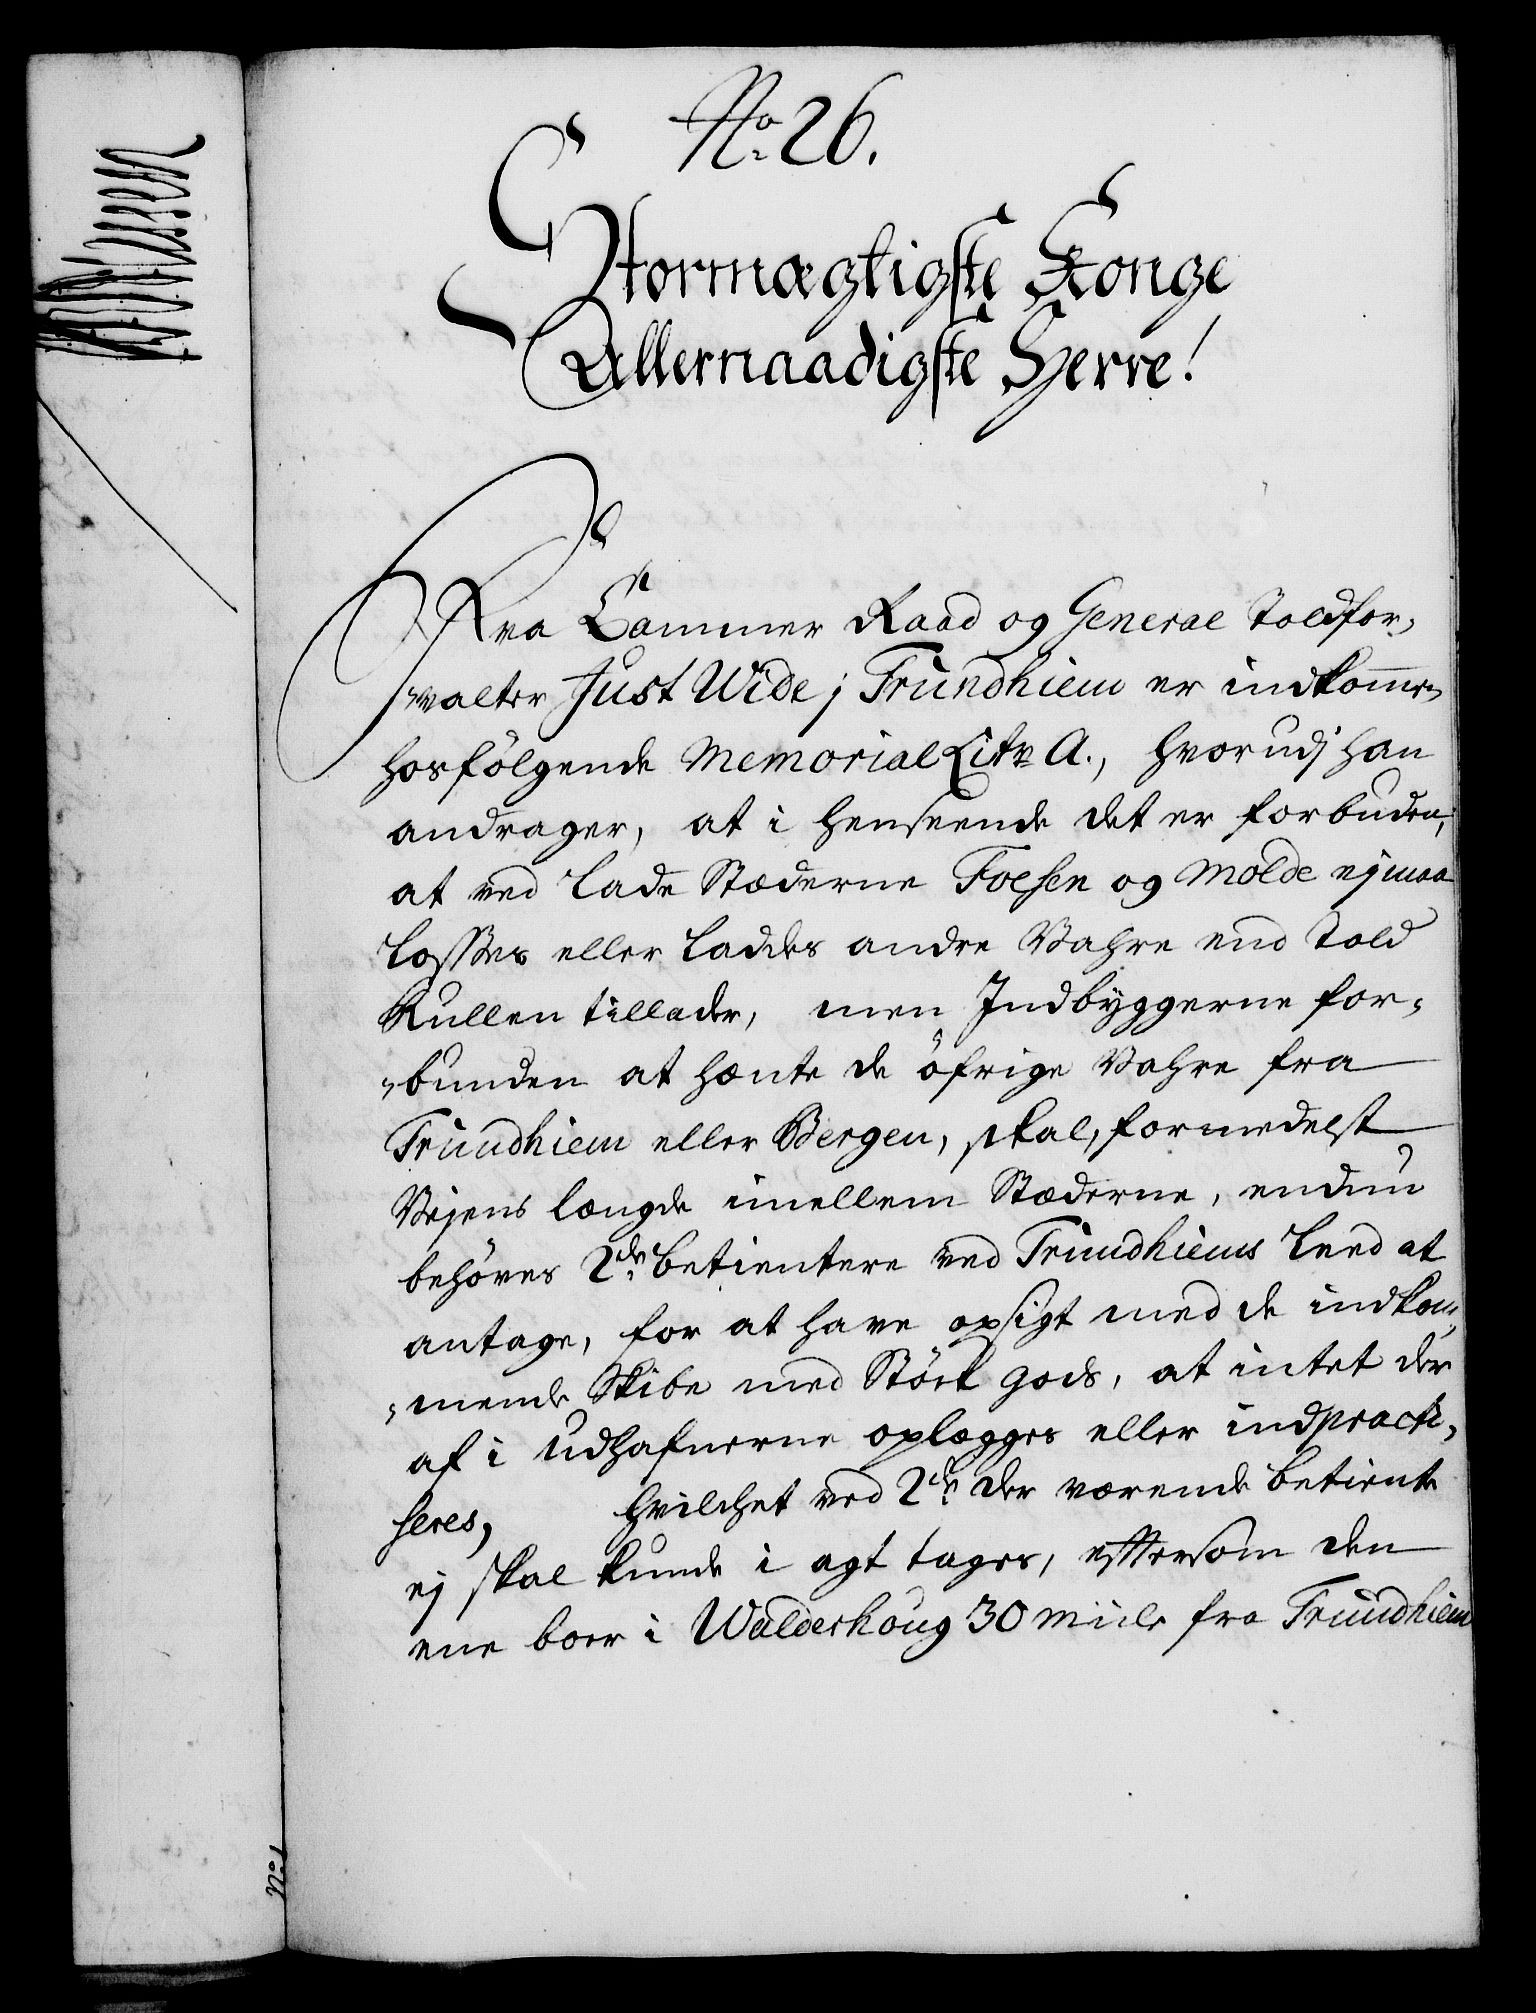 No. 26.
Stormægtigste Konge
Allernaadigste Herre!
Fra Cammer Raad og General Toldfor-
valter Just Wide j Trundhiem er indkommen
hosfölgende Memorial Litr A., hvorudj han
andrager, at i henseende det er forbuden,
at ved Lade Stæderne Foesen og Molde ej maa
losses eller laddes andre Vahre end Told
Rullen tillader, men Indbyggerne for-
bunden at hænte de öfrige Vahre fra
Trundhiem eller Bergen, skal, formedelst
Vejens længde imellem Stæderne, endnu
behöves 2de betientere ved Trundhiems Leed at
antage, for at have opsigt med de indkom-
mende Skibe med Stört gods, at intet der
af i Udhafnerne oplægges eller indpracti-
seres, hvilchet ved 2de der værende betiente
ej skal kunde i agt tages, eftersom den
ene boer i Walderhoug 30 Miile fra Trundhiem
No. 1